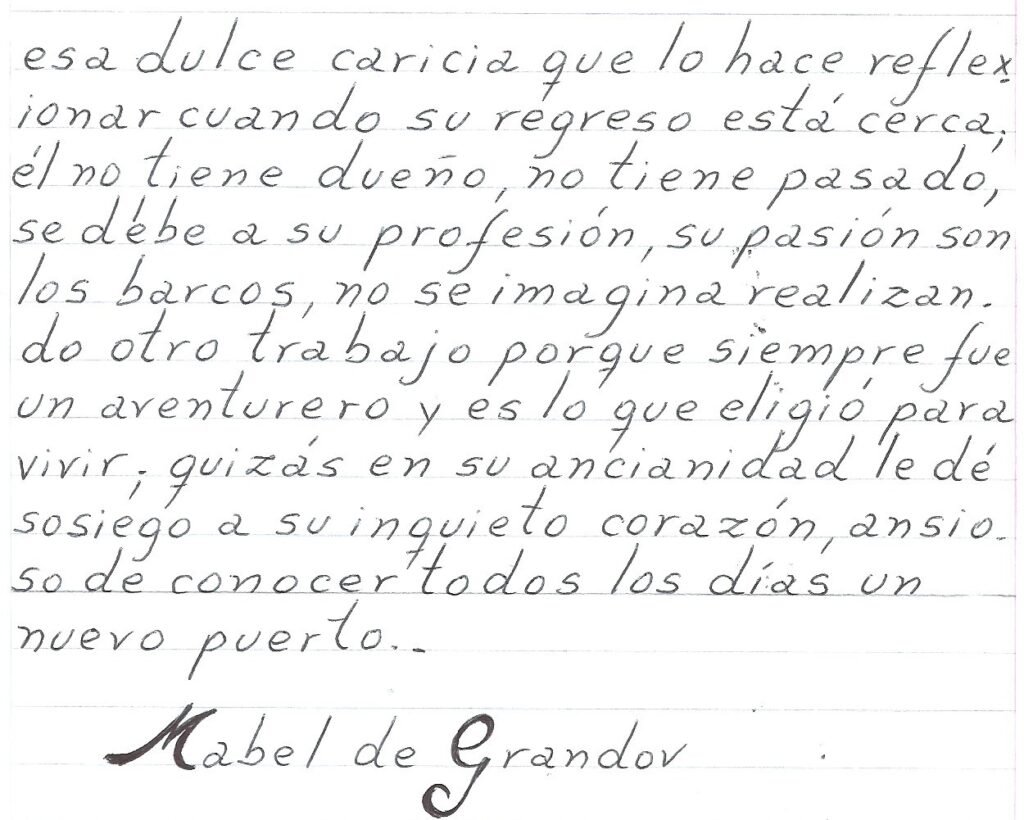 esa dulce caricia que lo hace reflex-
ionar cuando su regreso está cerca;
él no tiene dueño, no tiene pasado,
se debe a su profesión, su pasión son
los barcos, no se imagina realizan-
do otro trabajo porque siempre fue
un aventurero y es lo que eligió para
vivir; quizás en su ancianidad le dé
sosiego a su inquieto corazón, ansio-
so de conocer todos los días un
nuevo puerto..-
Mabel de Grandov